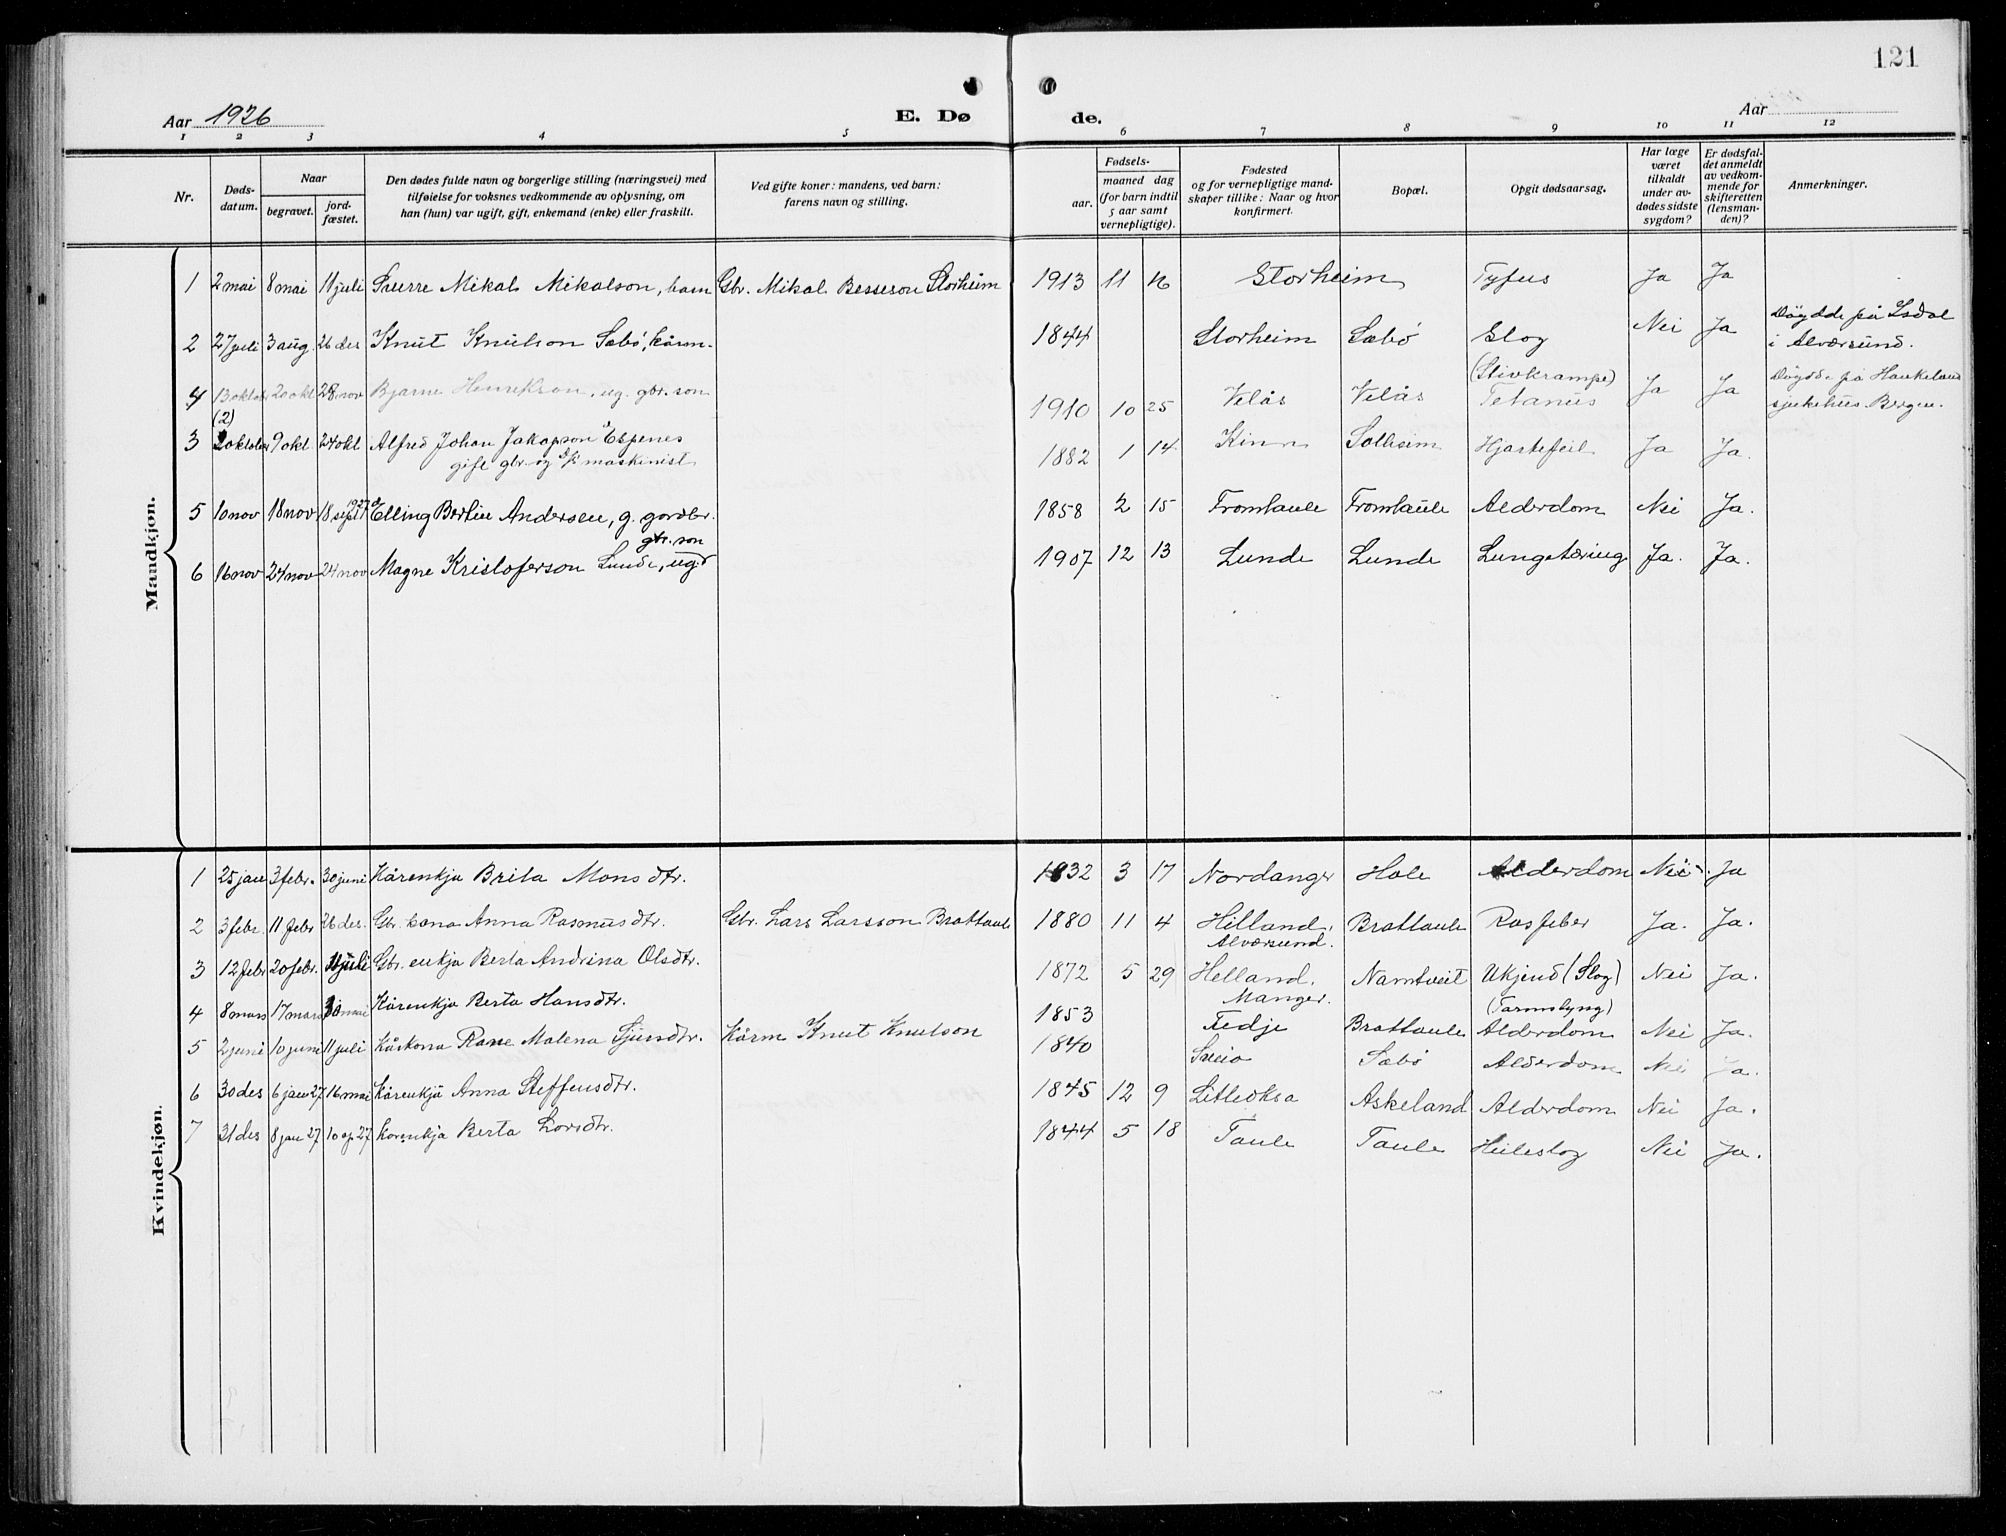 121
Aar 1926
E. Dø
de.
Aar
1 2 3 4 5 6 7 8 9 10 11 12
Nr.
Døds-
datum.
Naar
begravet.
jord-
fæstet.
Den dødes fulde navn og borgerlige stilling (næringsvei) med
tilføielse for voksnes vedkommende av oplysning, om
han (hun) var ugift, gift, enkemand (enke) eller fraskilt.
Ved gifte koner: mandens, ved barn:
farens navn og stilling.
Fødsels-
aar.
maaned dag
(for barn indtil
5 aar samt
vernepligtige).
Fødested
og for vernepligtige mand-
skaper tillike: Naar og hvor
konfirmert.
Bopæl.
Opgit dødsaarsag.
Har læge
været
tilkaldt
under av-
dødes sidste
sygdom?
Er dødsfal-
det anmeldt
av vedkom-
mende for
skifteretten
(lensman-
den)?
Anmerkninger.
Mandkjøn.
1 2 mai 8 mai 11 juli Sverre Mikal Mikalson, barn Gbr. Mikal Besseson Storheim 1913 11 16 Storheim Tyfus Ja Ja
2 27 juli 3 aug. 26 des Knut Knutson Sæbø, kårm. 1844 Storheim Sæbø Slog Nei Ja Døydde på Isdal
i Alversund.
4 13 oktober 20 okt 28 nov Bjarne Henrikson, ug. gbr. son 1910 10 25 Velås Velås (Stivkrampe)
Tetanus Ja Ja Døydde på Haukeland
sjukehus. Bergen.
3 (2) oktober 9 okt. 24 okt Alfred Johan Jakopson Espenes
gift gbr. og maskinist 1882 1 14 Kinn Solheim Hjartefeil Ja Ja.
5 10 nov 18 nov 18 sept 1927 Elling Bertin Andersen, g. gardbr. 1858 2 15 Fromtaule Fromtaule Alderdom Nei Ja.
6 16 nov 24 nov 24 nov Magne Kristoferson Lunde, ug. gbr. son 1907 12 13 Lunde Lunde Lungetæring Ja. Ja.
Kvindekjøn.
1 25 jan 3 febr. 30 juni Kårenkja Brita Monsdtr. 1832 3 17 Nordanger Hole Alderdom Nei Ja
2 3 febr. 11 febr 26 des. Gbr. kona Anna Rasmusdtr. Gbr. Lars Larsson Brattaule 1880 11 4 Hilland,
Alversund. Brattaule Rosfeber Ja. Ja.
3 12 febr 20 febr. 11 juli Gbr. enkja Berta Andrina Olsdtr. 1872 5 29 Helland,
Manger. Namtveit Ukjend (Slog)
(Tarmslyng) Nei Ja.
4 8 mars 17 mars mai Kårenkja Berta Hansdtr. 1853 Fedje Brattaule Alderdom Nei Ja.
5 2 juni 10 juni 11 juli Kårkona Malena Sjursdtr. Kårm Knut Knutson 1840 Sveio Sæbø Alderdom Nei Ja.
6 30 des 6 jan 27 16 mai Kårenkja Anna Steffensdtr. 1845 12 9 Litleoksa Askeland Alderdom Nei Ja.
7 31 des 8 jan 27 10 ap 27 Kårenkja Berta Larsdtr. 1844 5 18 Taule Taule Heileslog Nei Ja.